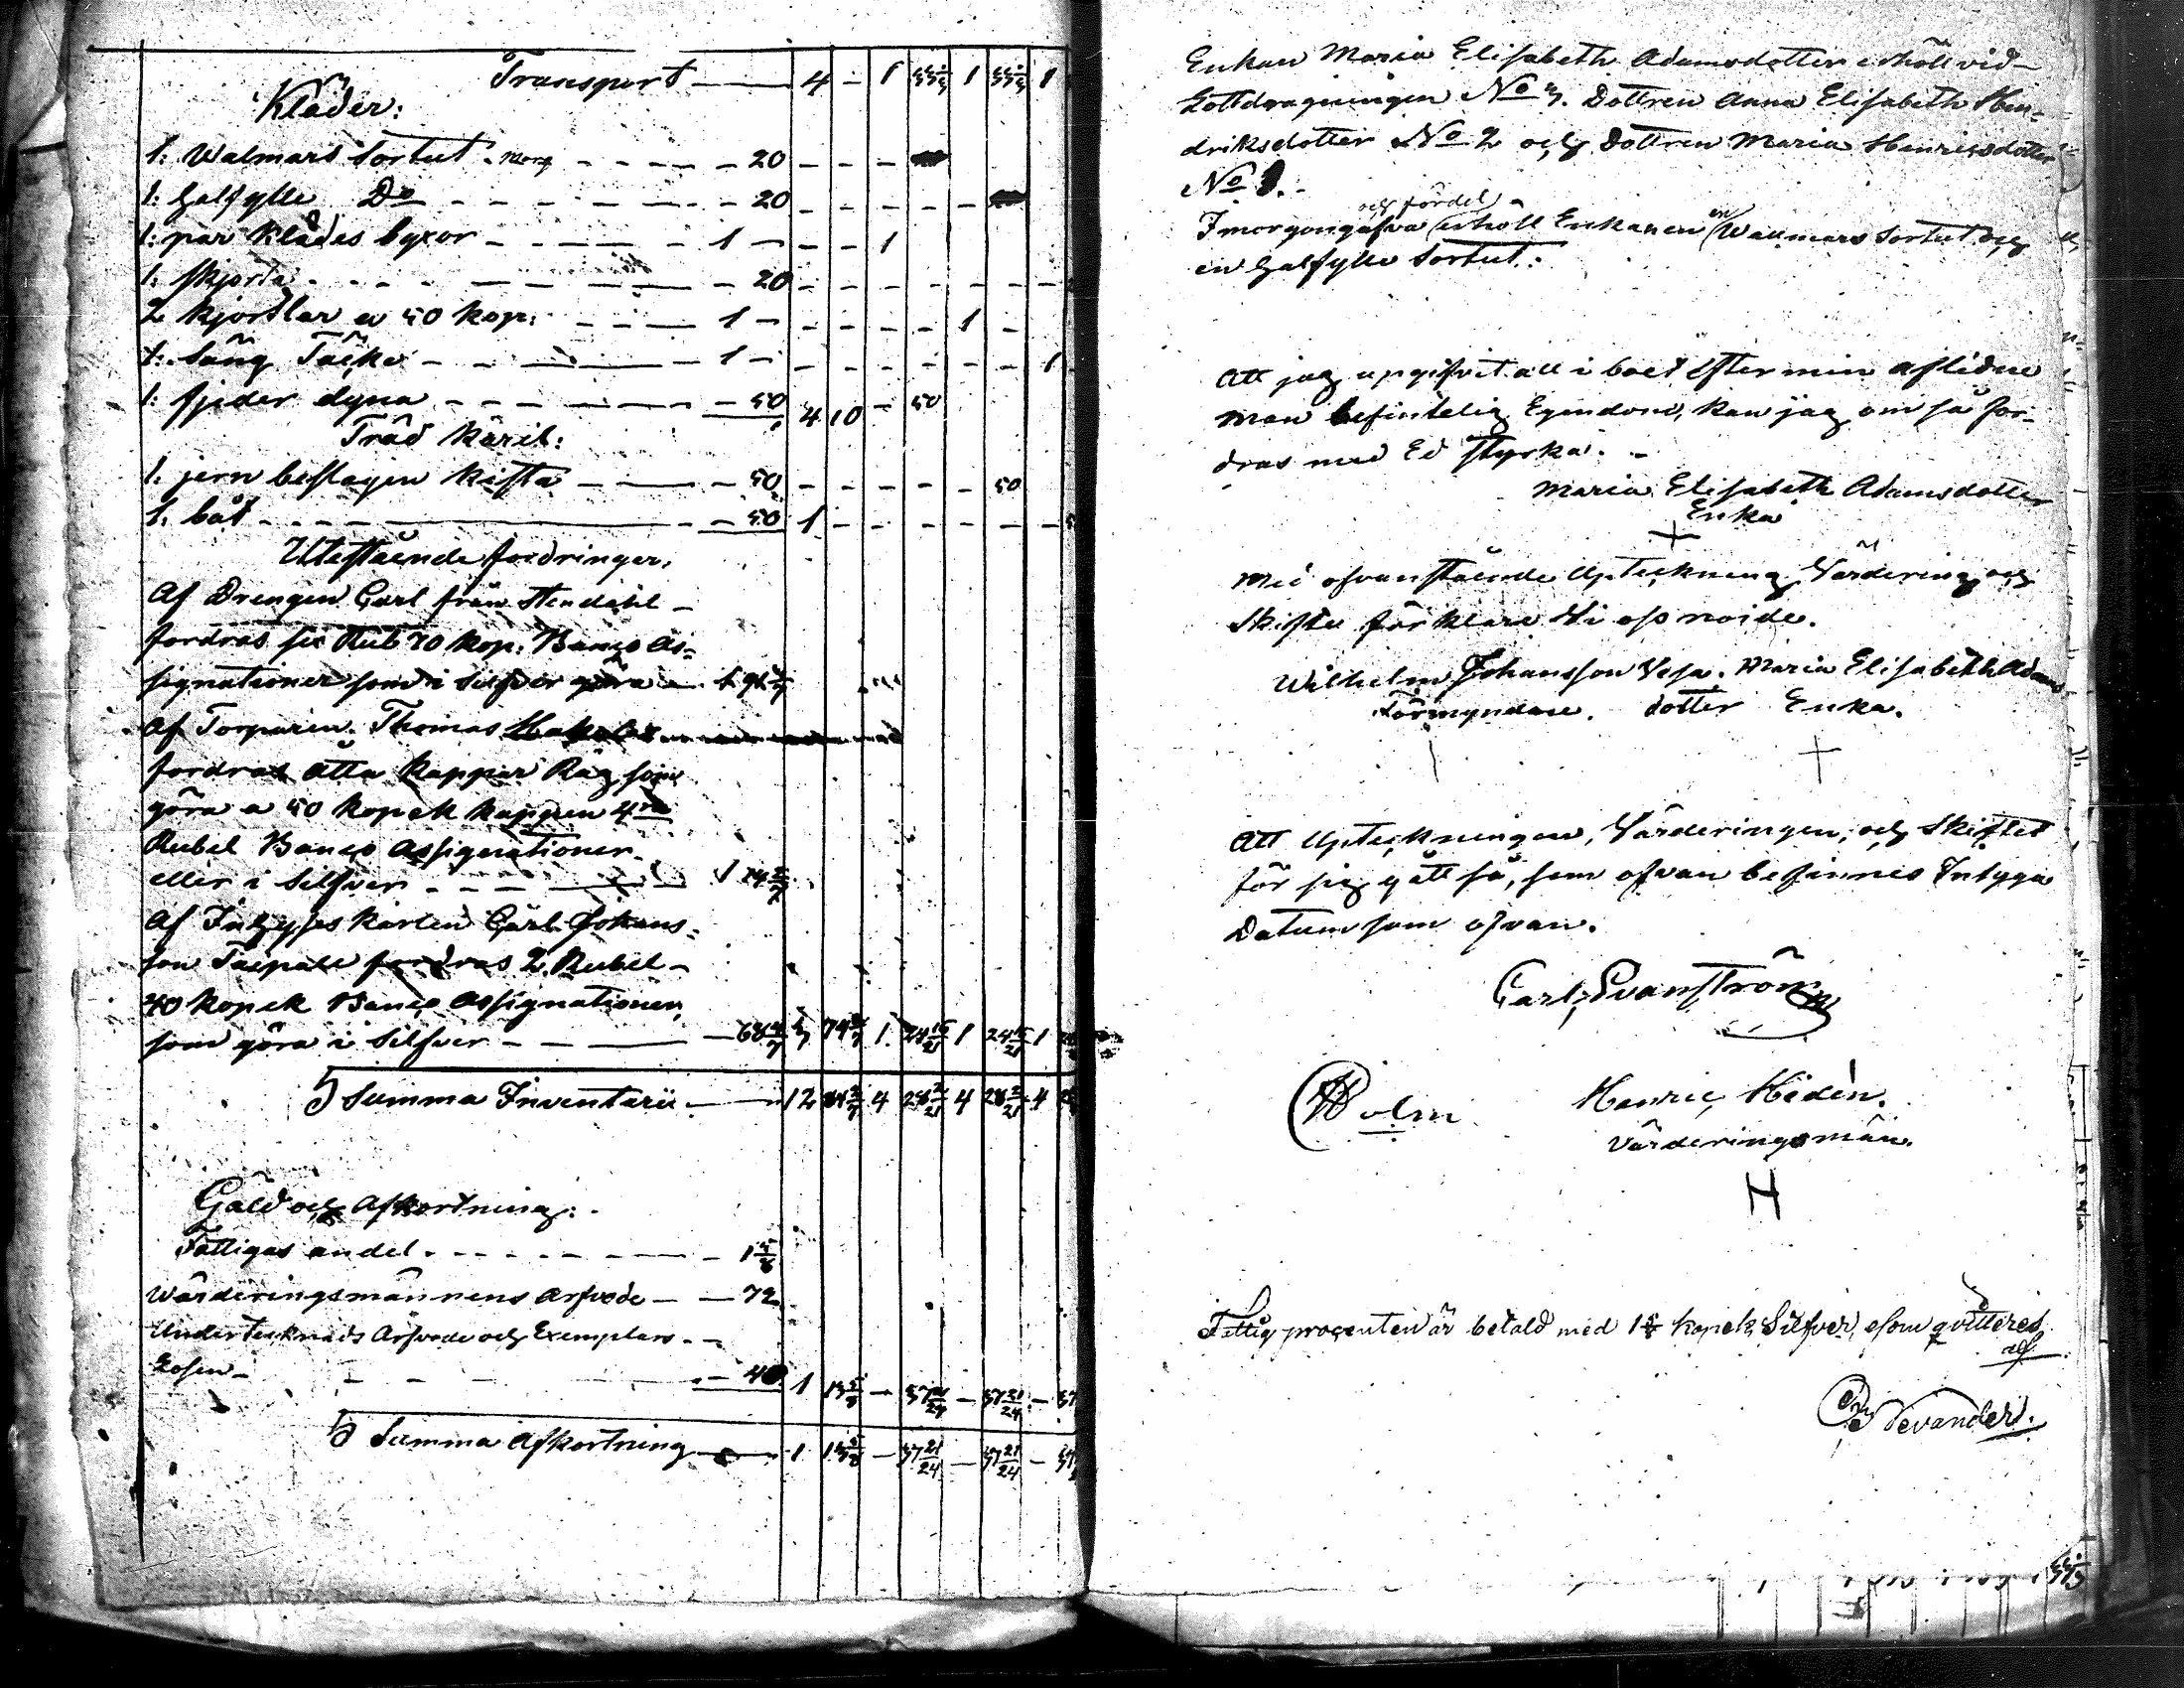 Transport — 4 — 1 33 1/3 1 33 1/3 1
Kläder:
1: Walmars Sortut - - - - 20 - - -
1: halfylle Do - - - - 20 - - - - -
1: par Klädes byxor - - - 1 - - - 1
1: skjorta - - - - 20 - - - - - - -
2 kjortlar a 50 kop: - - - 1 - - - - - 1 -
1: Säng Täcke - - - 1 - - - - - - - 1
1: fjeder dyna - - - 50 4 10 - 50
Träd Käril:
1: jern beslagen kista - - 50 - - - - - 50
1: båt - - - 50 1 - - - - - -
Utestående fordringar.
Af Drengen Carl från Stendahl
fordras sex Rub 70 kop. Banco As=
signationer som i silfver göra - 1 91 3/7
Af Torparen Thomas
fordras åtta kappar Råg som
göra a 50 kopek kappen 4ra
Rubel Banco Assignationer
eller i silfver - - - 1 14 2/7
Af Inhyses karlen Carl Johans=
son Taipale fordras 2 Rubel
40 kopek Banco Assignationer,
som göra i silfver - - - 68 4/7 3 74 2/7 1 24 16/21 1 24 16/21 1
Summa Inventarii — 12 84 2/7 4 28 2/21 4 28 2/21 4
Gäld och Afkortning:
Fattigas andel - - - - 1 5/8
Wärderingsmännens Arfvode - - 72
Undertecknads Arfvode och Exemplars
Lösen - - - 40 1 13 5/8 - 37 21/24 - 37 21/24 - 37
Summa Afkortning — 1 13 5/8 - 37 21/24 - 37 21/24 - 37
Enkan Maria Elisabeth Adamsdotter erhöll vid
Lottdragningen No 3. Dottren Anna Elisabeth Hen=
driksdotter No 2 och Dottren Maria Henricsdotter
No 1.
och fördel en
I morgongåfva erhöll Enkan Wallmars Sortut och
en halfylle Sortut.
Att jag upgifvit all i boet efter min aflidne
man befintelig Egendom, kan jag om så for=
dras med Ed styrka.
Maria Elisabeth Adamsdotter
Enka
Med ofvanstående Upteckning Värdering och
Skifte förklare Vi oss nöide.
Wilhelm Johansson Vesa. Maria Elisabeth Adams
Förmyndare. dotter Enka.
Att Upteckningen, Värderingen, och Skiftet
för sig gått så, som ofvan befinnes Intyga
Datum som ofvan.
Carl Svanström
Holm Henric Hedén.
Värderingsmän.
H
Fattig procenten är betald med 1 5/8 kopek Silfver, som qvitteres
af
Nevander.